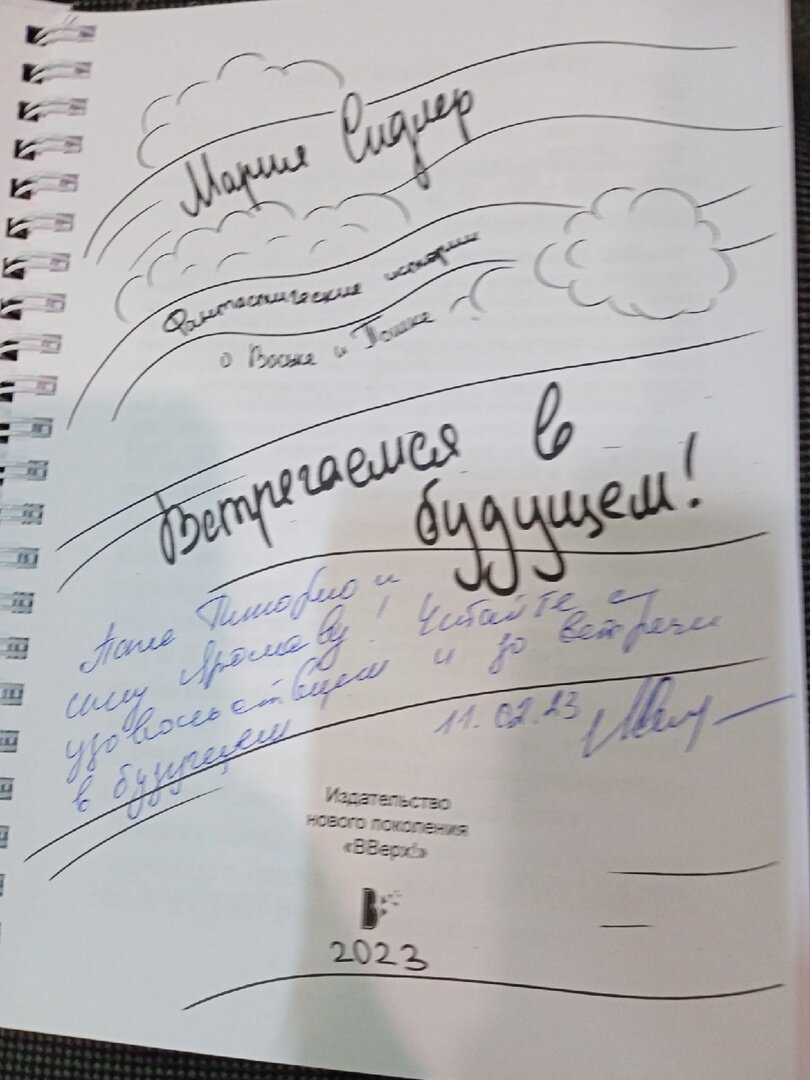 Мария Сидлер
Фантастические истории
о Ваське и Пашке
Встречаемся в
будущем!
и
сыну Ярославу! Читайте с
удовольствием и до встречи
в будущем 11.02.23
Издательство
нового поколения
«ВВерх!»
В
2023